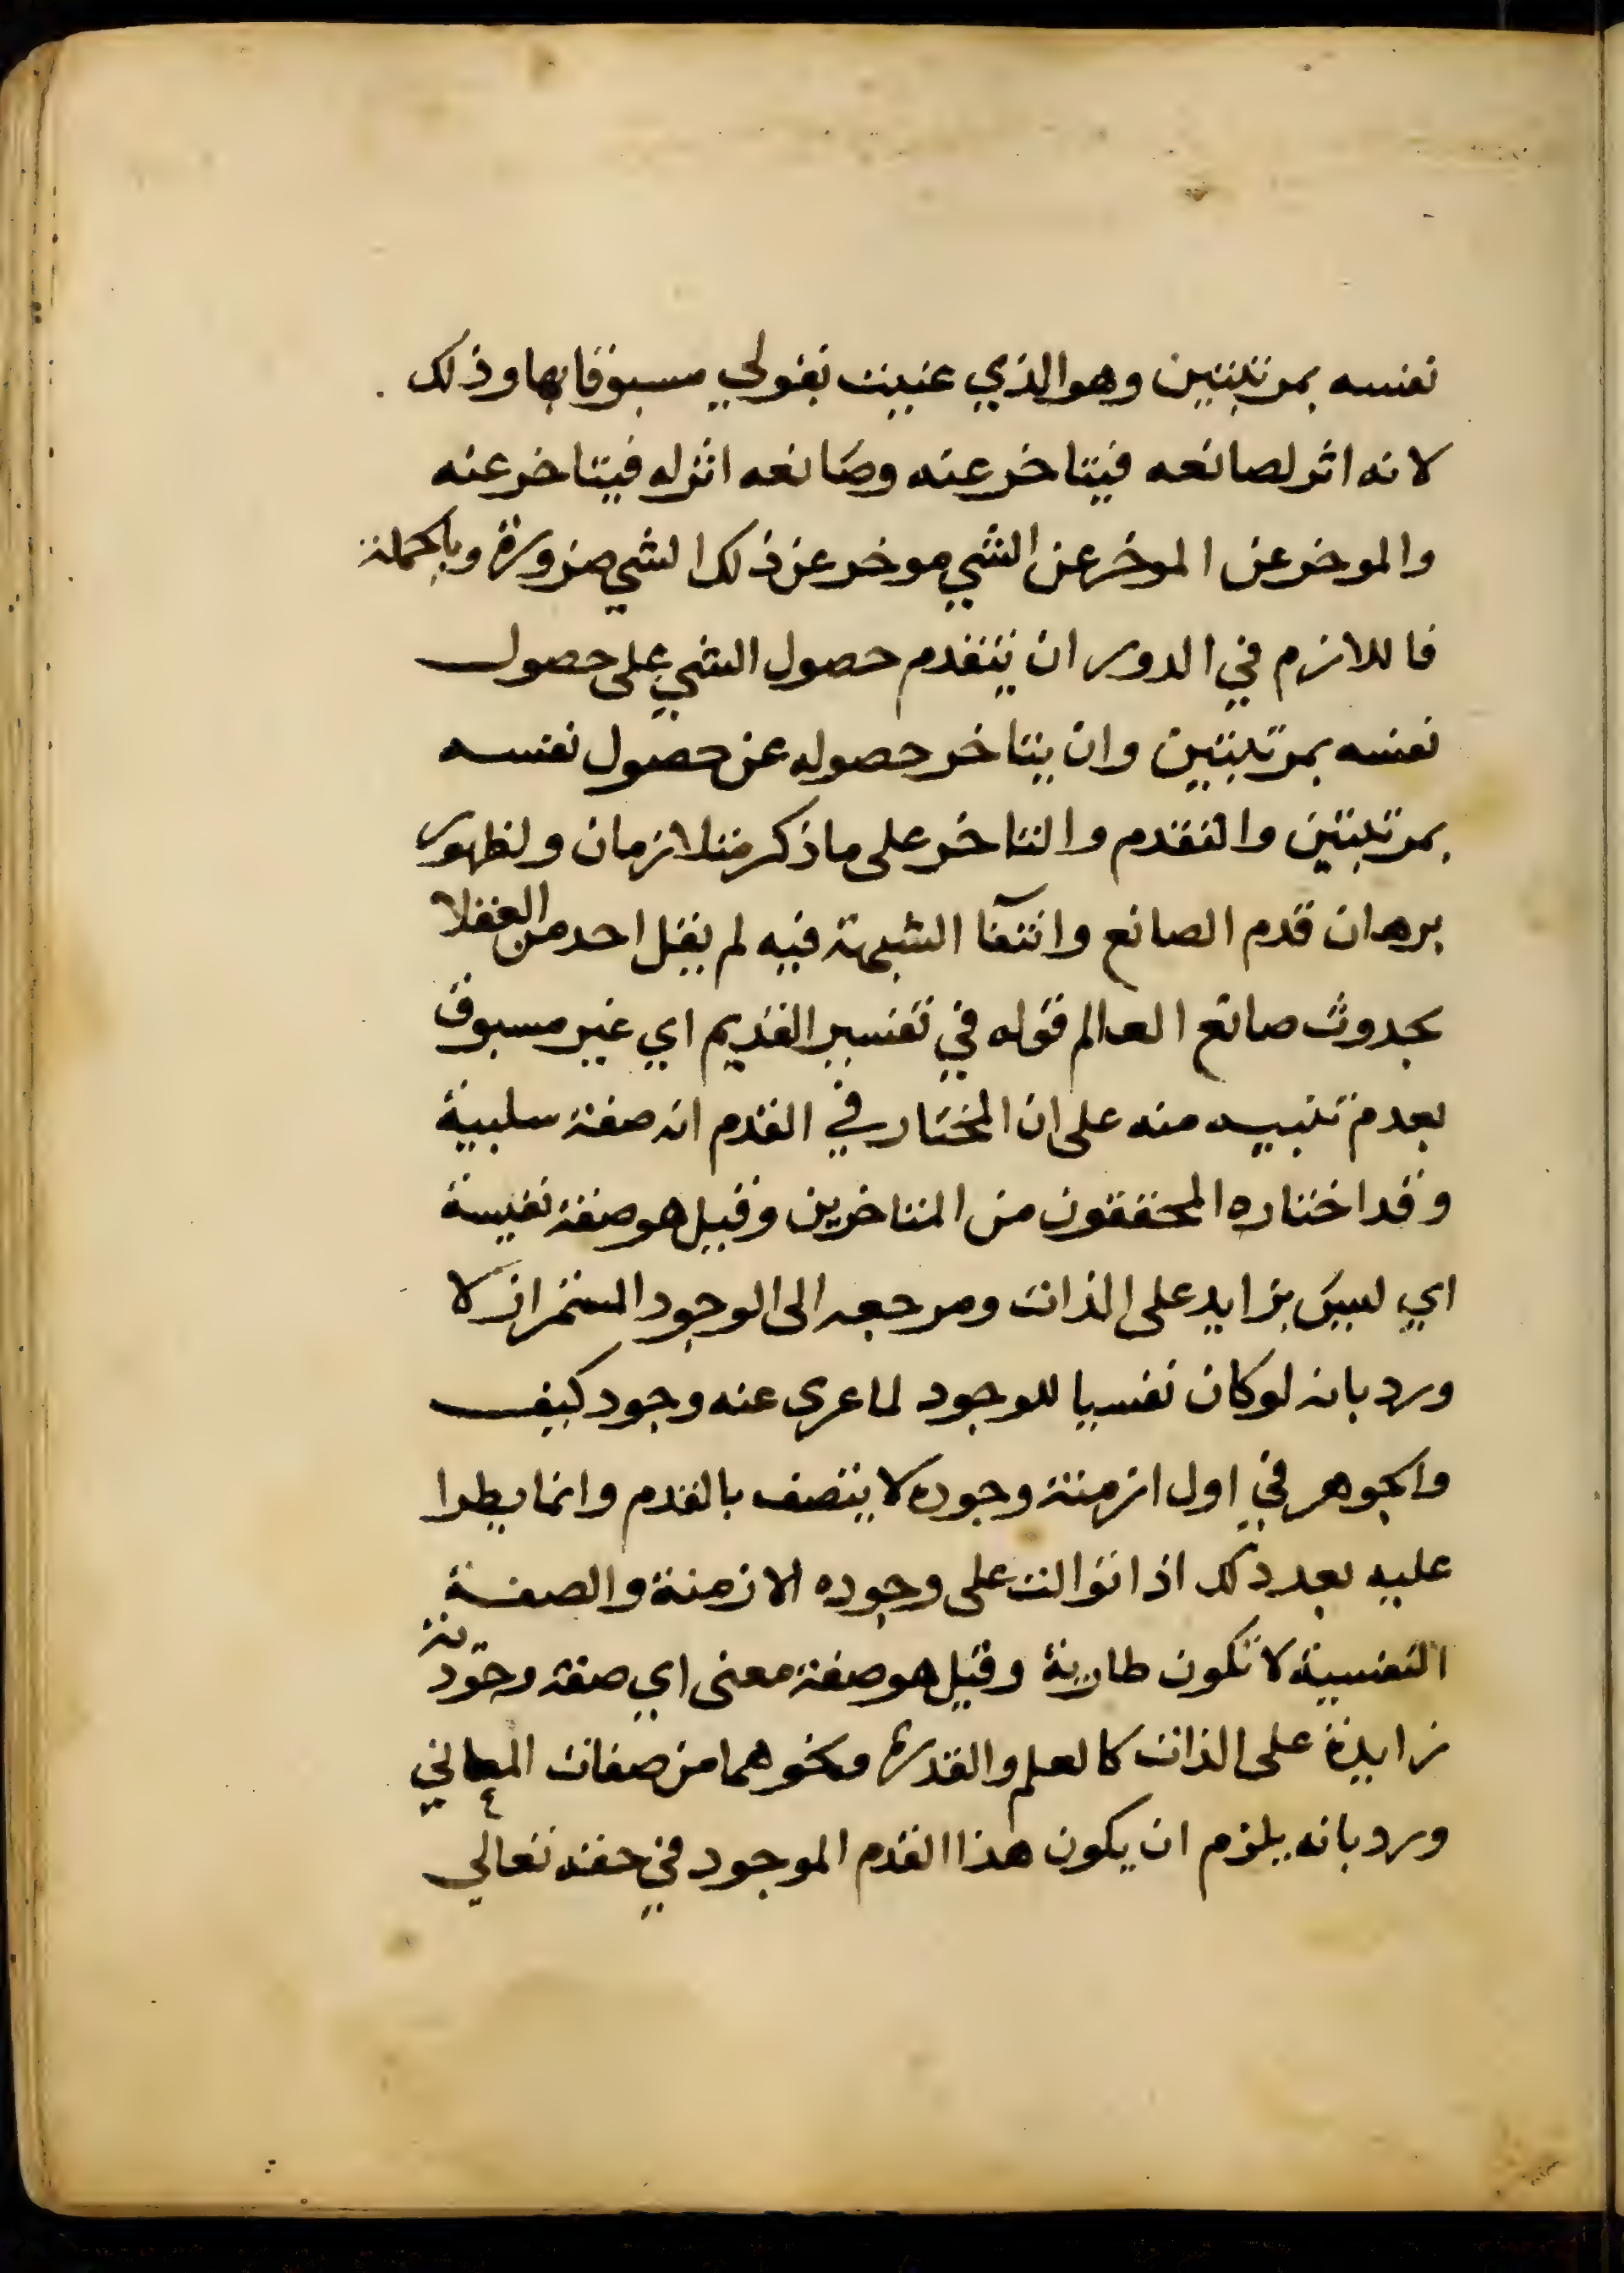 نفسه بمرتبتين وهو الذي عنيت بقولي مسبوقا بها وذلك
لانه اثر لصانعه فيتاخر عنه وصانعه اثر له فيتاخر عنه
والموخر عن الموخر عن الشي موخر عن ذلك الشي ضرورة وبالجملة
فاللازم في الدور ان يتقدم حصول الشي على حصول
نفسه بمرتبتين وان يتاخر حصوله عن حصول نفسه
بمرتبتين والتقدم والتاخر على ما ذكر متلازمان ولظهور
برهان قدم الصانع وانتفآ الشبهة فيه لم يقل احد من العقلا
بحدوث صانع العالم قوله في تفسير القديم اي غير مسبوق
بعدم تنبيه منه على ان المختار في القدم انه صفة سلبية
وقد اختاره المحققون من المتاخرين وقيل هو صفة نفسية
اي ليس بزايد على الذات ومرجعه الى الوجود المستمر ازلا
ورد بانه لو كان نفسيا للوجود لما عرى عنه وجود كيف
والجوهر في اول ازمنة وجوده لا يتصف بالقدم وانما يطرا
عليه بعد ذلك اذا توالت على وجوده الازمنة والصفة
النفسية لا تكون طارية وقيل هو صفة معنى اي صفة وجودية
زايدة على الذات كالعلم والقدرة ونحوهما من صفات المعاني
ورد بانه يلزم ان يكون هذا القدم الموجود في حقه تعالى